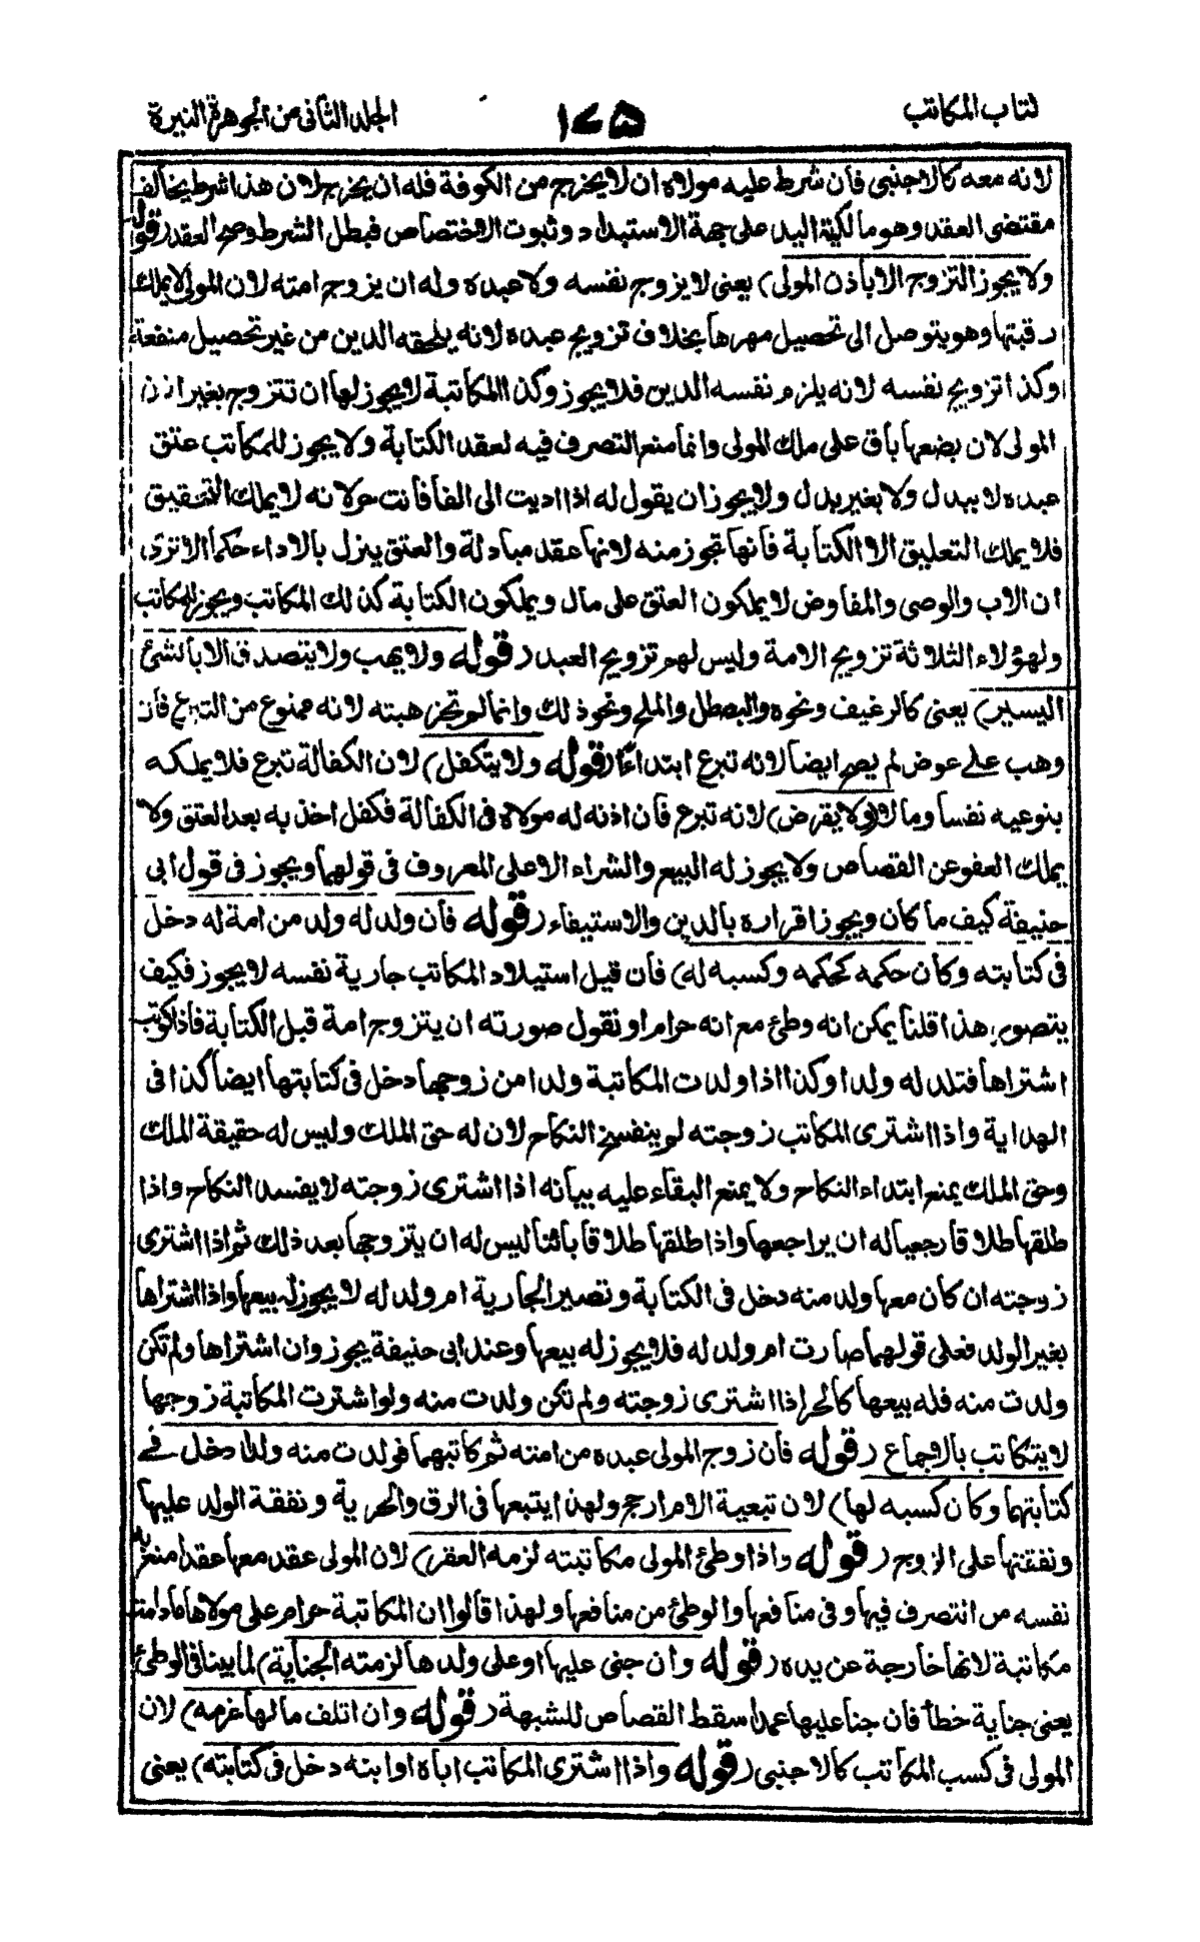 كتاب المكاتب
١٧٥
الجلد الثانى من الجوهرة النيرة
لانه معه كالاجنبى فان شرط عليه مولاه ان لا يخرج من الكوفة فله ان يخرج لان هذا شرط يخالف
مقتضى العقد وهو مالكية اليد على جهة الاستبداد وثبوت الاختصاص فبطل الشرط وصح العقد (قوله
ولا يجوز التزوج الا باذن المولى) يعنى لا يزوج نفسه ولا عبده وله ان يزوج امته لان المولى لا يملك
رقبتها وهو يتوصل الى تحصيل مهرها بخلاف تزويج عبده لانه يلحقه الدين من غير تحصيل منفعة
وكذا تزويج نفسه لانه يلزم نفسه الدين فلا يجوز وكذا المكاتبة لا يجوز لها ان تتزوج بغير اذن
المولى لان بضعها باق على ملك المولى وانما منع التصرف فيه لعقد الكتابة ولا يجوز للمكاتب عتق
عبده لا ببدل ولا بغير بدل ولا يجوز ان يقول له اذا اديت الى الفا فانت حر لانه لا يملك التحقيق
فلا يملك التعليق الا الكتابة فانها تجوز منه لانها عقد مبادلة والعتق ينزل بالاداء حكما الا ترى
ان الاب والوصى والمفاوض لا يملكون العتق على مال ويملكون الكتابة كذلك المكاتب ويجوز للمكاتب
ولهؤلاء الثلاثة تزويج الامة وليس لهم تزويج العبد (قوله ولا يهب ولا يتصدق الا بالشئ
اليسير) يعنى كالرغيف ونحوه والبصطل والملح ونحو ذلك وانما لم تجز هبته لانه ممنوع من التبرع فان
وهب على عوض لم يصح ايضا لانه تبرع ابتداءً (قوله ولا يتكفل) لان الكفالة تبرع فلا يملكه
بنوعيه نفسا ومالا (ولا يقرض) لانه تبرع فان اذنه له مولاه فى الكفالة فكفل اخذ به بعد العتق ولا
يملك العفو عن القصاص ولا يجوز له البيع والشراء الا على المعروف فى قولهما ويجوز فى قول ابى
حنيفة كيف ما كان ويجوز اقراره بالدين والاستيفاء (قوله فان ولد له ولد من امة له دخل
فى كتابته وكان حكمه كحكمه وكسبه له) فان قيل استيلاد المكاتب جارية نفسه لا يجوز فكيف
يتصور هذا قلنا يمكن انه وطئ مع انه حرام او نقول صورته ان يتزوج امة قبل الكتابة فاذا كوتب
اشتراها فتلد له ولدا وكذا اذا ولدت المكاتبة ولدا من زوجها دخل فى كتابتها ايضا كذا فى
الهداية واذا اشترى المكاتب زوجته لم ينفسخ النكاح لان له حق الملك وليس له حقيقة الملك
وحق الملك يمنع ابتداء النكاح ولا يمنع البقاء عليه بيانه اذا اشترى زوجته لا يفسد النكاح واذا
طلقها طلاقا رجعيا له ان يراجعها واذا طلقها طلاقا بائنا ليس له ان يتزوجها بعد ذلك ثم اذا اشترى
زوجته ان كان معها ولد منه دخل فى الكتابة وتصير الجارية ام ولد له لا يجوز له بيعها واذا اشتراها
بغير الولد فعلى قولهما صارت ام ولد له فلا يجوز له بيعها وعند ابى حنيفة يجوز وان اشتراها ولم تكن
ولدت منه فله بيعها كالحر اذا اشترى زوجته ولم تكن ولدت منه ولو اشترت المكاتبة زوجها
لا يتكاتب بالاجماع (قوله فان زوج المولى عبده من امته ثم كاتبهما فولدت منه ولدا دخل فى
كتابتهما وكان كسبه لها) لان تبعية الام ارجح ولهذا يتبعها فى الرق والحرية ونفقة الولد عليها
ونفقتها على الزوج (قوله واذا وطئ المولى مكاتبته لزمه العقر) لان المولى عقد معها عقدا منع به
نفسه من التصرف فيها وفى منافعها والوطئ من منافعها ولهذا قالوا ان المكاتبة حرام على مولاها مادامت
مكاتبة لانها خارجة عن يده (قوله وان جنى عليها او على ولدها لزمته الجناية) لما بينا فى الوطئ
يعنى جناية خطأ فان جنا عليها عمدا سقط القصاص للشبهة (قوله وان اتلف مالها غرمه) لان
المولى فى كسب المكاتب كالاجنبى (قوله واذا اشترى المكاتب اباه او ابنه دخل فى كتابته) يعنى